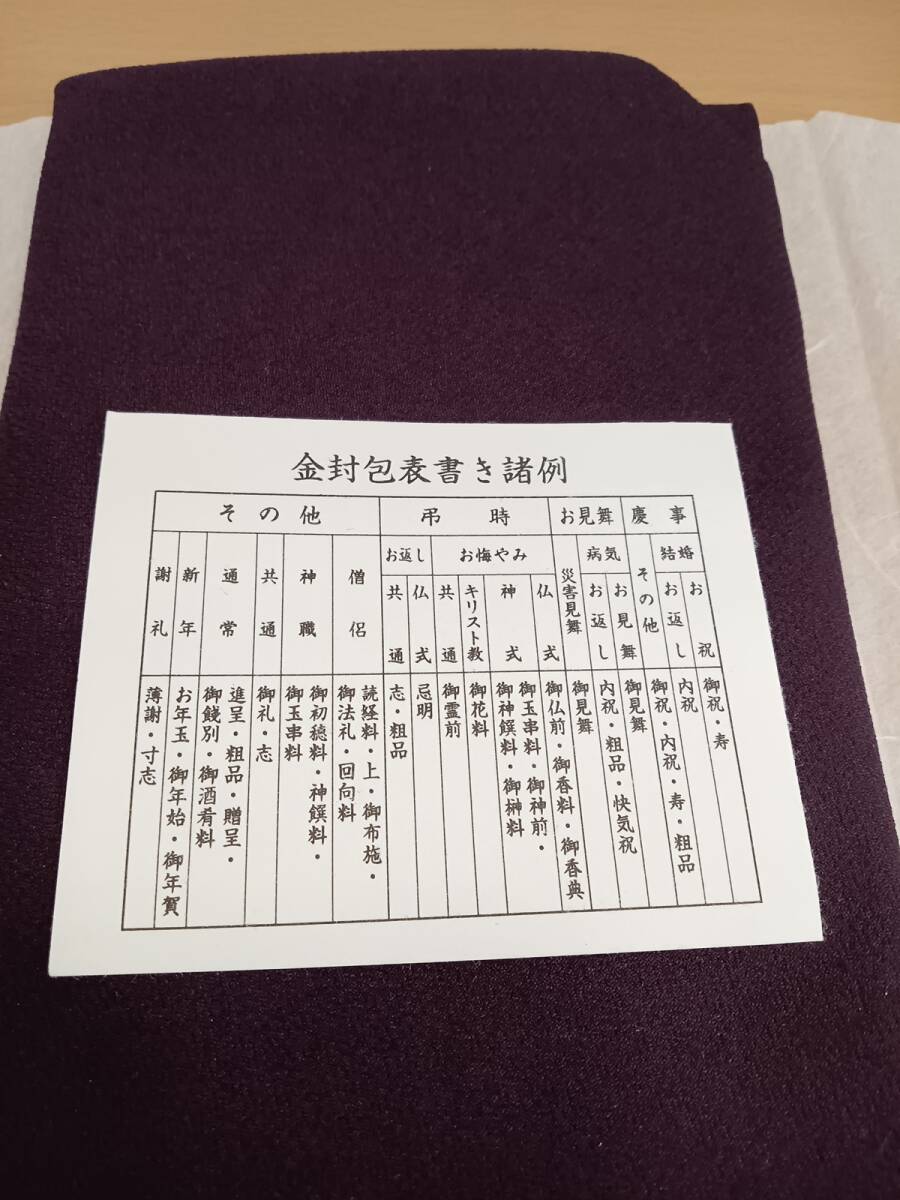 金封包表書き諸例
慶事
結婚
お祝
御祝・寿
お返し
内祝
その他
御祝・内祝・寿・粗品
お見舞
病気
お見舞
御見舞
お返し
内祝・粗品・快気祝
災害見舞
御見舞
弔時
お悔やみ
仏式
御仏前・御香料・御香典
神式
御玉串料・御神前・
御神饌料・御榊料
キリスト教
御花料
共通
御霊前
お返し
仏式
忌明
共通
志・粗品
その他
僧侶
読経料・上・御布施・
御法礼・回向料
神職
御初穂料・神饌料・
御玉串料
共通
御礼・志
通常
進呈・粗品・贈呈・
御餞別・御酒肴料
新年
お年玉・御年始・御年賀
謝礼
薄謝・寸志